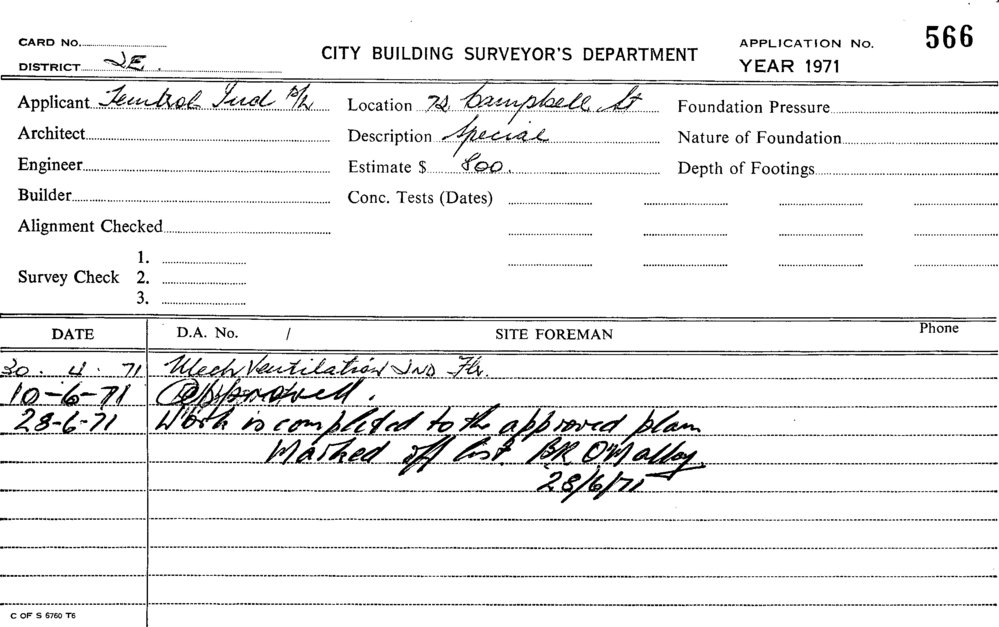 CARD No.
DISTRICT
CITY BUILDING SURVEYOR'S DEPARTMENT
APPLICATION No. 566
YEAR 1971
Applicant Temtrol Ind P/L
Location 72 Campbell St
Foundation Pressure
Architect
Description Special
Nature of Foundation
Engineer
Estimate $ 800.
Depth of Footings
Builder
Conc. Tests (Dates)
Alignment Checked
Survey Check 1.
2.
3.
DATE D.A. No. / SITE FOREMAN Phone
30.4.71 Mech Ventilation 2ND Flr.
10-6-71 Approved.
28-6-71 Work is completed to the approved plan
Marked off list. BR O'Malley
28/6/71
C OF S 6760 T6